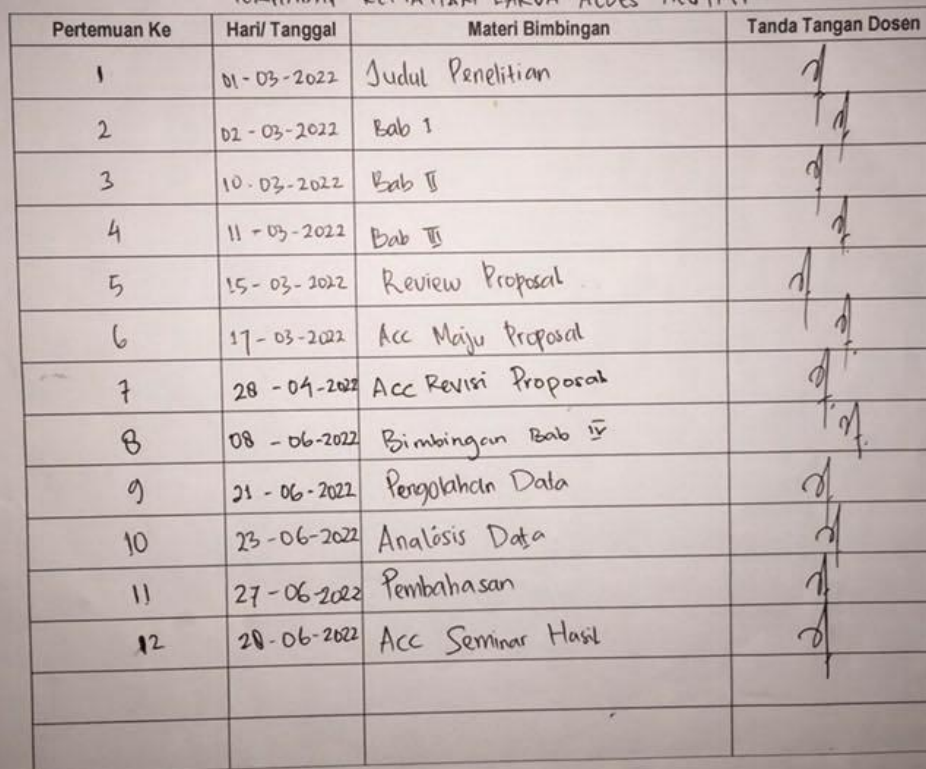 Pertemuan Ke Hari/ Tanggal Materi Bimbingan Tanda Tangan Dosen
1 01-03-2022 Judul Penelitian
2 02-03-2022 Bab I
3 10-03-2022 Bab II
4 11-03-2022 Bab III
5 15-03-2022 Review Proposal
6 17-03-2022 Acc Maju Proposal
7 28-04-2022 Acc Revisi Proposal
8 08-06-2022 Bimbingan Bab IV
9 21-06-2022 Pengolahan Data
10 23-06-2022 Analisis Data
11 27-06-2022 Pembahasan
12 28-06-2022 Acc Seminar Hasil